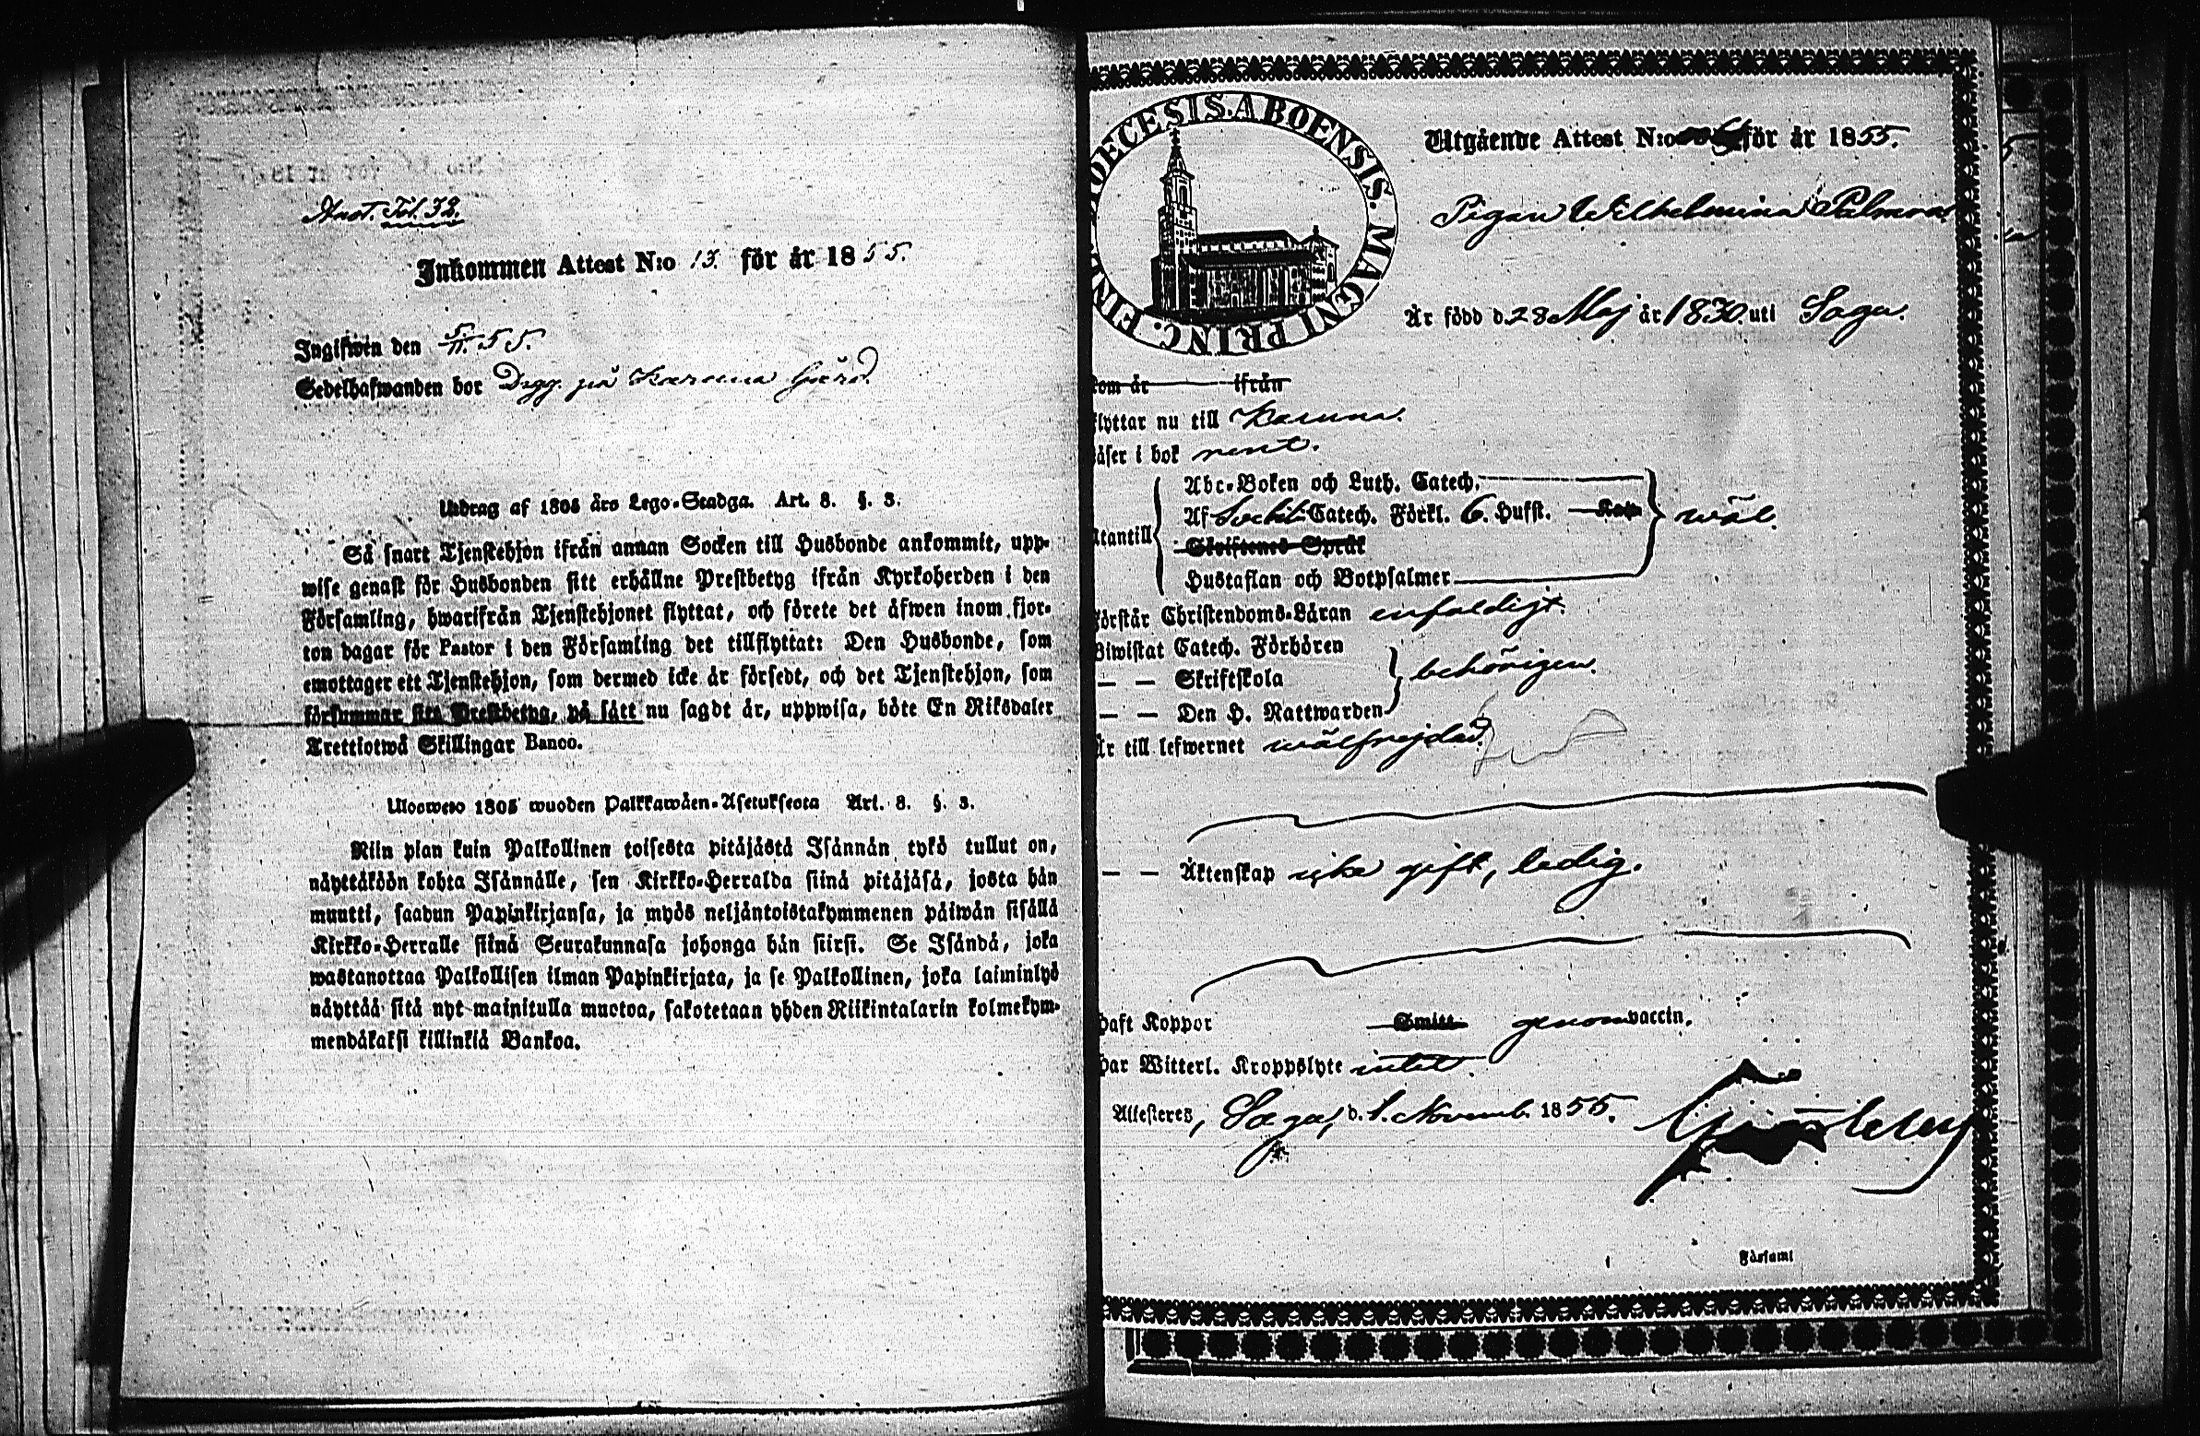 Anot. Fol. 32.
Inkommen Attest N:o 13. för år 1855.
Ingifwen den 5/11. 55.
Sedelhafwanden bor Dsgg. på Karuna Gård.
Utdrag af 1805 års Lego-Stadga. Art. 8. §. 3.
Så snart Tjenstehjon ifrån annan Socken till Husbonde ankommit, upp-
wise genast för Husbonden sitt erhållne Prestbetyg ifrån Kyrkoherden i den
Församling, hwarifrån Tjenstehjonet flyttat, och förete det äfwen inom fjor-
ton dagar för Pastor i den Församling det tillflyttat: Den Husbonde, som
emottager ett Tjenstehjon, som dermed icke är försedt, och det Tjenstehjon, som
försummar sitt Prestbetyg, på sätt nu sagdt är, uppwisa, böte En Riksdaler
Trettiotwå Skillingar Banco.
Ulosweto 1805 wuoden Palkkawäen-Asetuksesta Art. 8. §. 3.
Niin pian kuin Palkollinen toisesta pitäjästä Isännän tykö tullut on,
näyttäköön kohta Isännälle, sen Kirkko-Herralda siinä pitäjäsä, josta hän
muutti, saadun Papinkirjansa, ja myös neljäntoistakymmenen päiwän sisällä
Kirkko-Herralle siinä Seurakunnasa johonga hän siirsi. Se Isändä, joka
wastanottaa Palkollisen ilman Papinkirjata, ja se Palkollinen, joka laiminlyö
näyttää sitä nyt mainitulla muotoa, sakotetaan yhden Riikintalarin kolmekym-
mendäkaksi killinkiä Bankoa.
DIOECESIS. ABOENSIS. MAGNI PRINC. FINL.
Utgående Attest N:o för år 1855.
Pigan Wilhelmina Palmroos
Är född d. 28 Maj år 1830. uti Sagu.
kom år ifrån
flyttar nu till Karuna.
läser i bok rent.
Utantill
Abc-Boken och Luth. Catech.
Af Svebil. Catech. Förkl. 6. Hufst. Kap.
Skriftenes Språk
Hustaflan och Botpsalmer
wäl.
Förstår Christendoms-Läran enfaldigt.
Biwistat Catech. Förhören
— — Skriftskola
— — Den H. Nattwarden
behörigen.
Är till lefwernet wälfrejdad.
— — Äktenskap icke gift, ledig.
Haft Koppor Smitt genom vaccin.
Har Witterl. Kroppslyte intet.
Attesteres, Sagu, d. 1. Novemb. 1855.
Församl